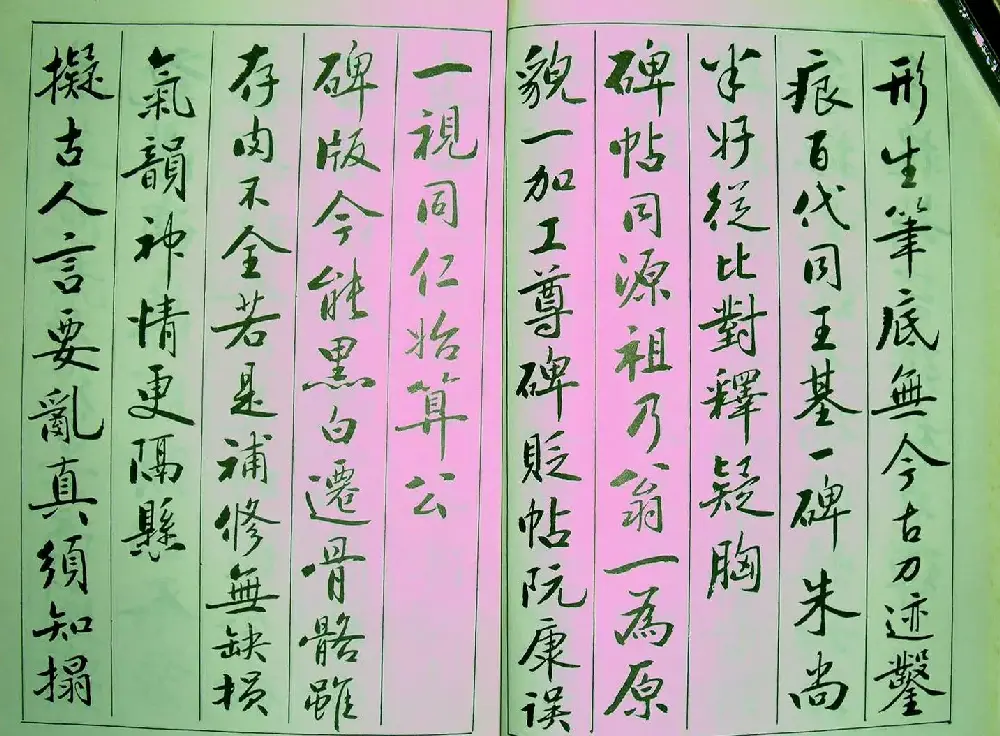 形生筆底無今古刀迹鑿
痕百代同王基一碑朱尚
半好從比對釋疑胸
碑帖同源祖乃翁一為原
貌一加工尊碑貶帖阮康误
一視同仁始算公
碑版今能黑白遷骨骼雖
存肉不全若是補修無缺损
氣韻神情更隔懸
擬古人言要亂真須知搨